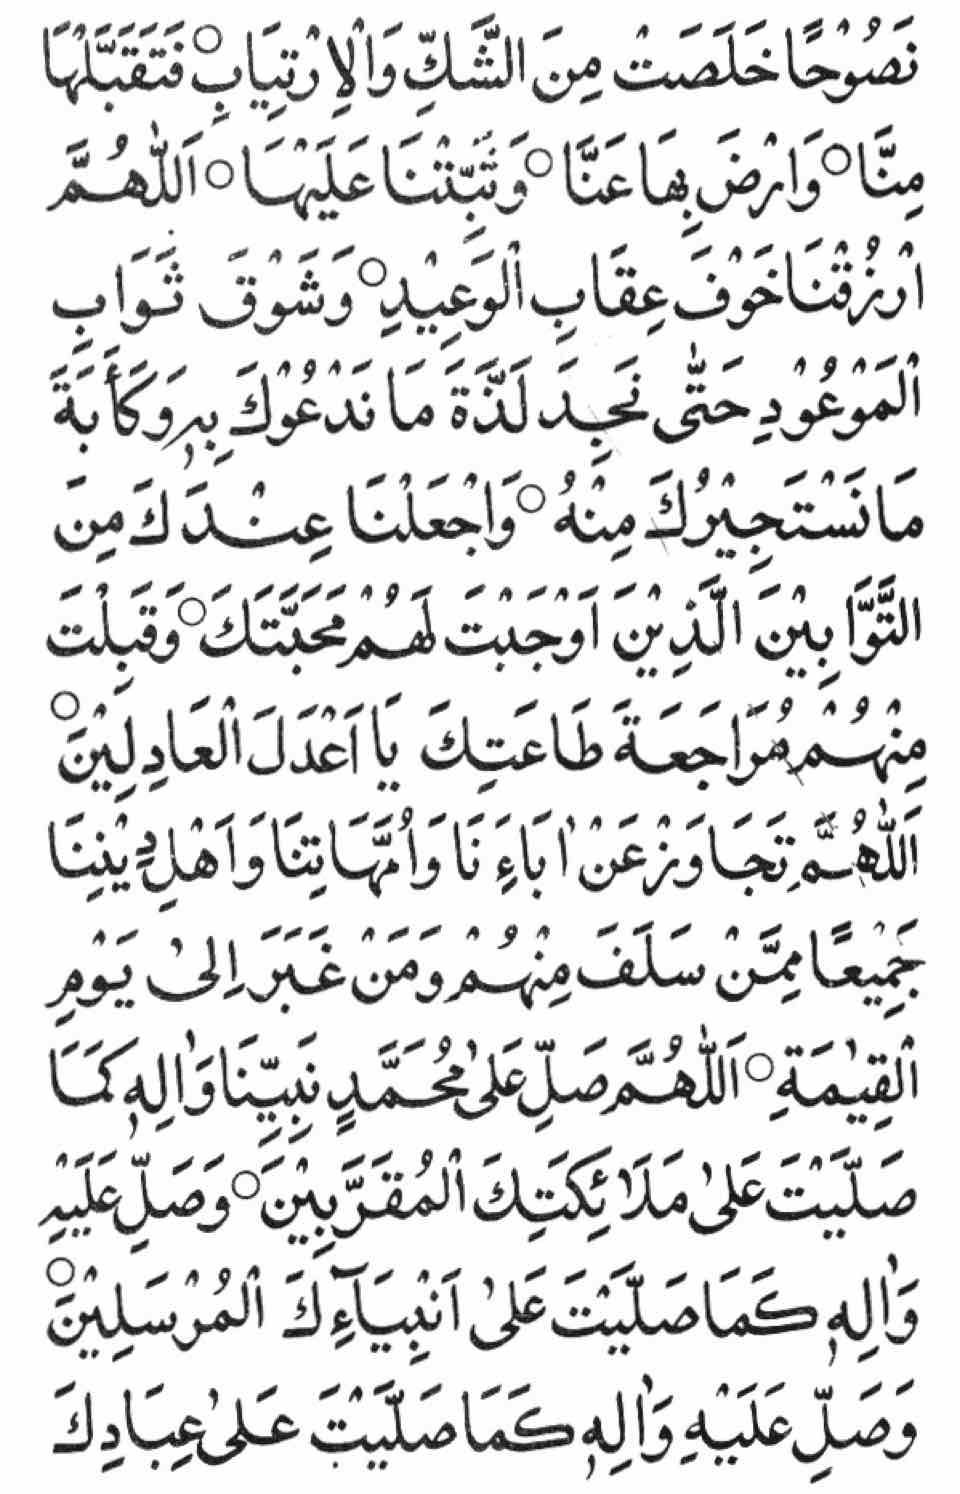 نَصُوْحًا خَلَصَتْ مِنَ الشَّكِّ وَالْاِرْتِيَابِ○ فَتَقَبَّلْهَا
مِنَّا○ وَارْضَ بِهَا عَنَّا○ وَثَبِّتْنَا عَلَيْهَا○ اَللّٰهُمَّ
ارْزُقْنَا خَوْفَ عِقَابِ الْوَعِيْدِ○ وَشَوْقَ ثَوَابِ
الْمَوْعُوْدِ حَتّٰى نَجِدَ لَذَّةَ مَا نَدْعُوْكَ بِهٖ وَكَأٰبَةَ
مَا نَسْتَجِيْرُكَ مِنْهُ○ وَاجْعَلْنَا عِنْدَكَ مِنَ
التَّوَّابِيْنَ الَّذِيْنَ اَوْجَبْتَ لَهُمْ مَحَبَّتَكَ○ وَقَبِلْتَ
مِنْهُمْ مُرَاجَعَةَ طَاعَتِكَ يَا اَعْدَلَ الْعَادِلِيْنَ○
اَللّٰهُمَّ تَجَاوَزْ عَنْ اٰبَاءِنَا وَاُمَّهَاتِنَا وَاَهْلِ دِيْنِنَا
جَمِيْعًا مِمَّنْ سَلَفَ مِنْهُمْ وَمَنْ غَبَرَ اِلٰى يَوْمِ
الْقِيٰمَةِ○ اَللّٰهُمَّ صَلِّ عَلٰى مُحَمَّدٍ نَبِيِّنَا وَاٰلِهٖ كَمَا
صَلَّيْتَ عَلٰى مَلَائِكَتِكَ الْمُقَرَّبِيْنَ○ وَصَلِّ عَلَيْهِ
وَاٰلِهٖ كَمَا صَلَّيْتَ عَلٰى اَنْبِيَآءِكَ الْمُرْسَلِيْنَ○
وَصَلِّ عَلَيْهِ وَاٰلِهٖ كَمَا صَلَّيْتَ عَلٰى عِبَادِكَ